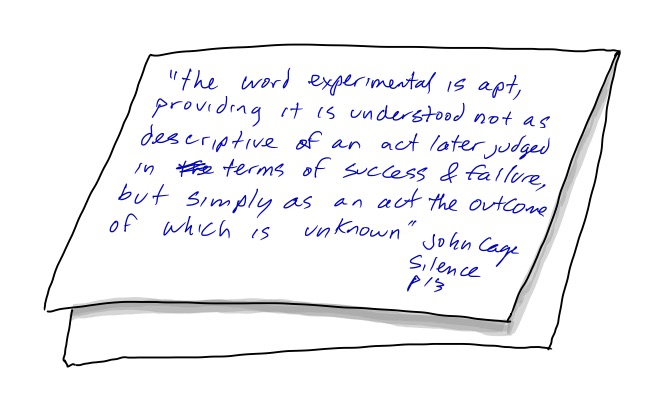 "the word experimental is apt,
providing it is understood not as
descriptive of an act later judged
in terms of success & failure,
but simply as an act the outcome
of which is unknown" John Cage
Silence
p13